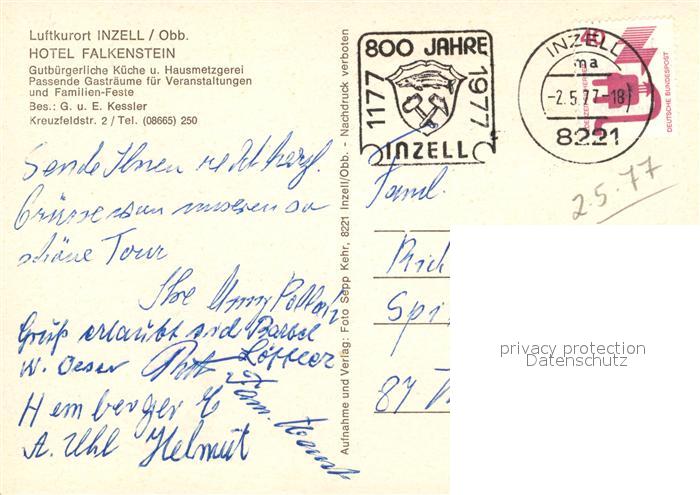 Luftkurort INZELL / Obb.
HOTEL FALKENSTEIN
Gutbürgerliche Küche u. Hausmetzgerei
Passende Gasträume für Veranstaltungen
und Familien-Feste
Bes.: G. u. E. Kessler
Kreuzfeldstr. 2 / Tel. (08665) 250
Sende Ihnen recht herzl.
Grüsse von unseren so
schöne Tour
Ihre
Gruß erlaubt sich
W. Oeser Löffler
Hemberger E Fam.
A. Uhl Helmut
Aufnahme und Verlag: Foto Sepp Kehr, 8221 Inzell/Obb. - Nachdruck verboten
800 JAHRE
1177 1977
INZELL
INZELL
ma
-2.5.77-18
8221
40
DEUTSCHE BUNDESPOST
2.5.77
Famil.
Rich
Spi
87
privacy protection
Datenschutz